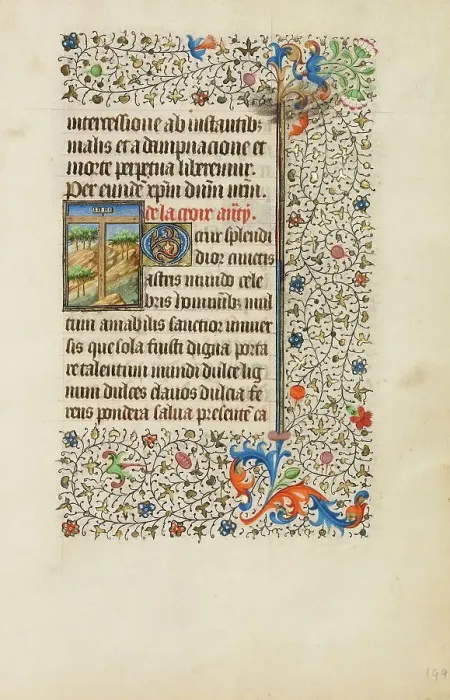 intercessione ab instantibz
malis et a dampnacione et
morte perpetua liberemur.
Per eundē xpm dnm nrm.
INRI
de la croix
O crux splendi
dior cunctis
astris mundo cele
bris hominibz mul
tum amabilis sanctior univer
sis que sola fuisti digna porta
re talentum mundi dulce lig
num dulces clavos dulcia fe
rens pondera salva presentē ca
199